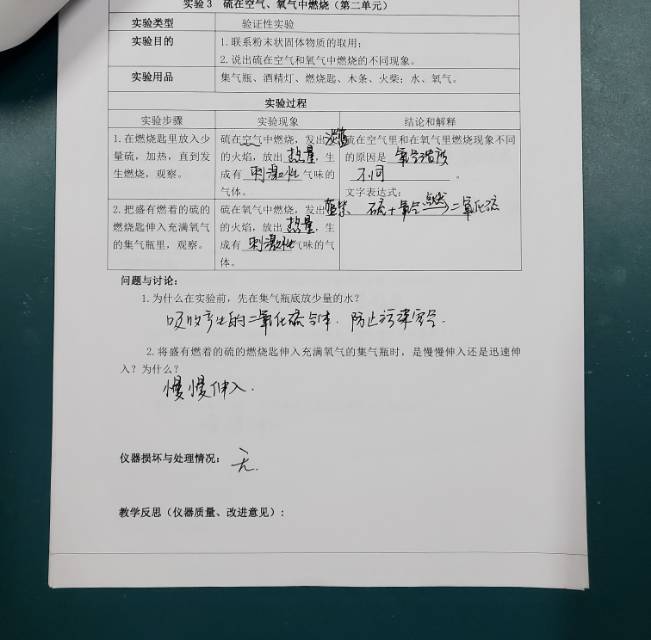 实验3 硫在空气、氧气中燃烧（第二单元）
实验类型 验证性实验
实验目的 1.联系粉末状固体物质的取用;
2.说出硫在空气和氧气中燃烧的不同现象。
实验用品 集气瓶、酒精灯、燃烧匙、木条、火柴；水、氧气。
实验过程
实验步骤 实验现象 结论和解释
1.在燃烧匙里放入少量硫，加热，直到发生燃烧，观察。
硫在空气中燃烧，发出淡蓝
的火焰，放出热量，生
成有刺激性气味的
气体。
硫在空气里和在氧气里燃烧现象不同
的原因是 氧气浓度
不同。
文字表达式：
硫+氧气 点燃 二氧化硫
2.把盛有燃着的硫的
燃烧匙伸入充满氧气
的集气瓶里，观察。
硫在氧气中燃烧，发出蓝紫
的火焰，放出热量，生
成有刺激性气味的气
体。
问题与讨论：
1.为什么在实验前，先在集气瓶底放少量的水？
吸收产生的二氧化硫气体．防止污染空气．
2.将盛有燃着的硫的燃烧匙伸入充满氧气的集气瓶时，是慢慢伸入还是迅速伸
入？为什么？
慢慢伸入．
仪器损坏与处理情况： 无．
教学反思（仪器质量、改进意见）：